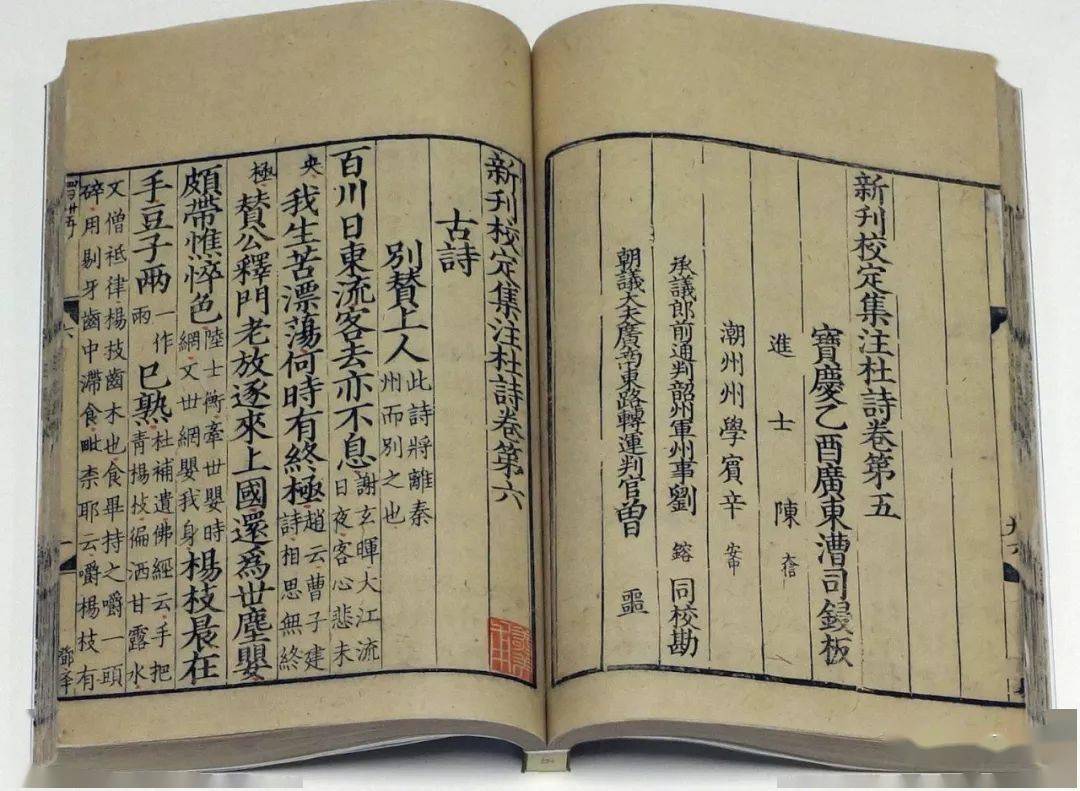 新刊校定集注杜詩卷第五
寶慶乙酉廣東漕司鋟板
進士 陳
潮州州學賓辛 安中
承議郎前通判韶州軍州事劉 鎔 同校勘
朝議大夫廣南東路轉運判官曾 噩
新刊校定集注杜詩卷第六
古詩
別贊上人 此詩將離秦州而別之也
百川日東流客去亦不息 謝玄暉大江流日夜客心悲未
央 我生苦漂蕩何時有終極 趙云曹子建詩相思無終
極 贊公釋門老放逐來上國還爲世塵嬰
頗帶憔悴色 陸士衡牽世嬰時網文世網嬰我身 楊枝晨在
手豆子兩 一作雨 巳熟 杜補遺佛經云手把青楊枝徧洒甘露水
又僧祗律楊枝齒木也食畢持之嚼一頭
碎用剔牙齒中滯食毗柰耶云嚼楊枝有